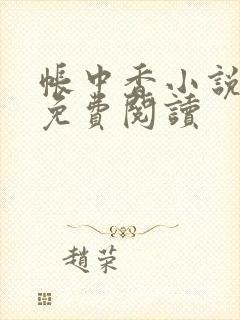 帳中香小說
免費閱讀
趙榮